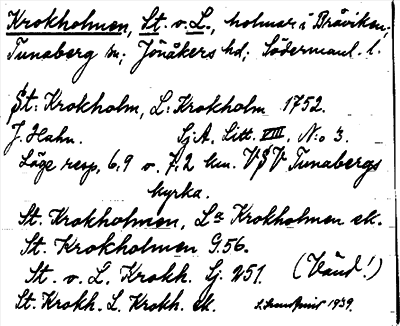 Krokholmen, St. o. L., holmar i Bråviken;
Tunaberg sn; Jönåkers hd; Södermanl. l.
St: Krokholm, L: Krokholm 1752.
J. Hahn. Sj.A. Litt. VIII. N:o 3.
Läge resp. 6,9 o. 7,2 km. VSV Tunabergs
kyrka.
St. Krokholmen, La Krokholmen ek.
St. Krokholmen G.56.
St. o. L. Krokh. Sj. 251. (Vänd!)
St. Krokh. L. Krokh. ek. 1939.